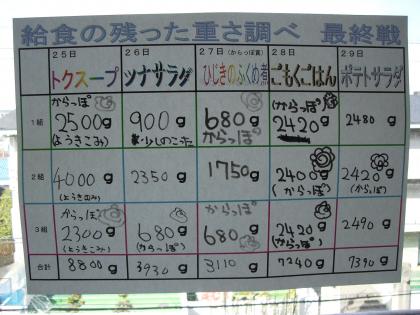 給食の残った重さ調べ 最終戦
25日 26日 27日(からっぽ賞) 28日 29日
トクスープ ツナサラダ ひじきのふくめ煮 ごもくごはん ポテトサラダ
1組
からっぽ 2500g (ようきこみ)
900g 少しのこった
680g からっぽ
(からっぽ) 2420g
2480g
2組
4000g (ようきこみ)
2350g
1750g
2400g (からっぽ)
2420g (からっぽ)
3組
からっぽ 2300g (ようきこみ)
680g (からっぽ)
からっぽ 680g
2420g (からっぽ)
2490g
合計 8800g 3930g 3110g 7240g 7390g